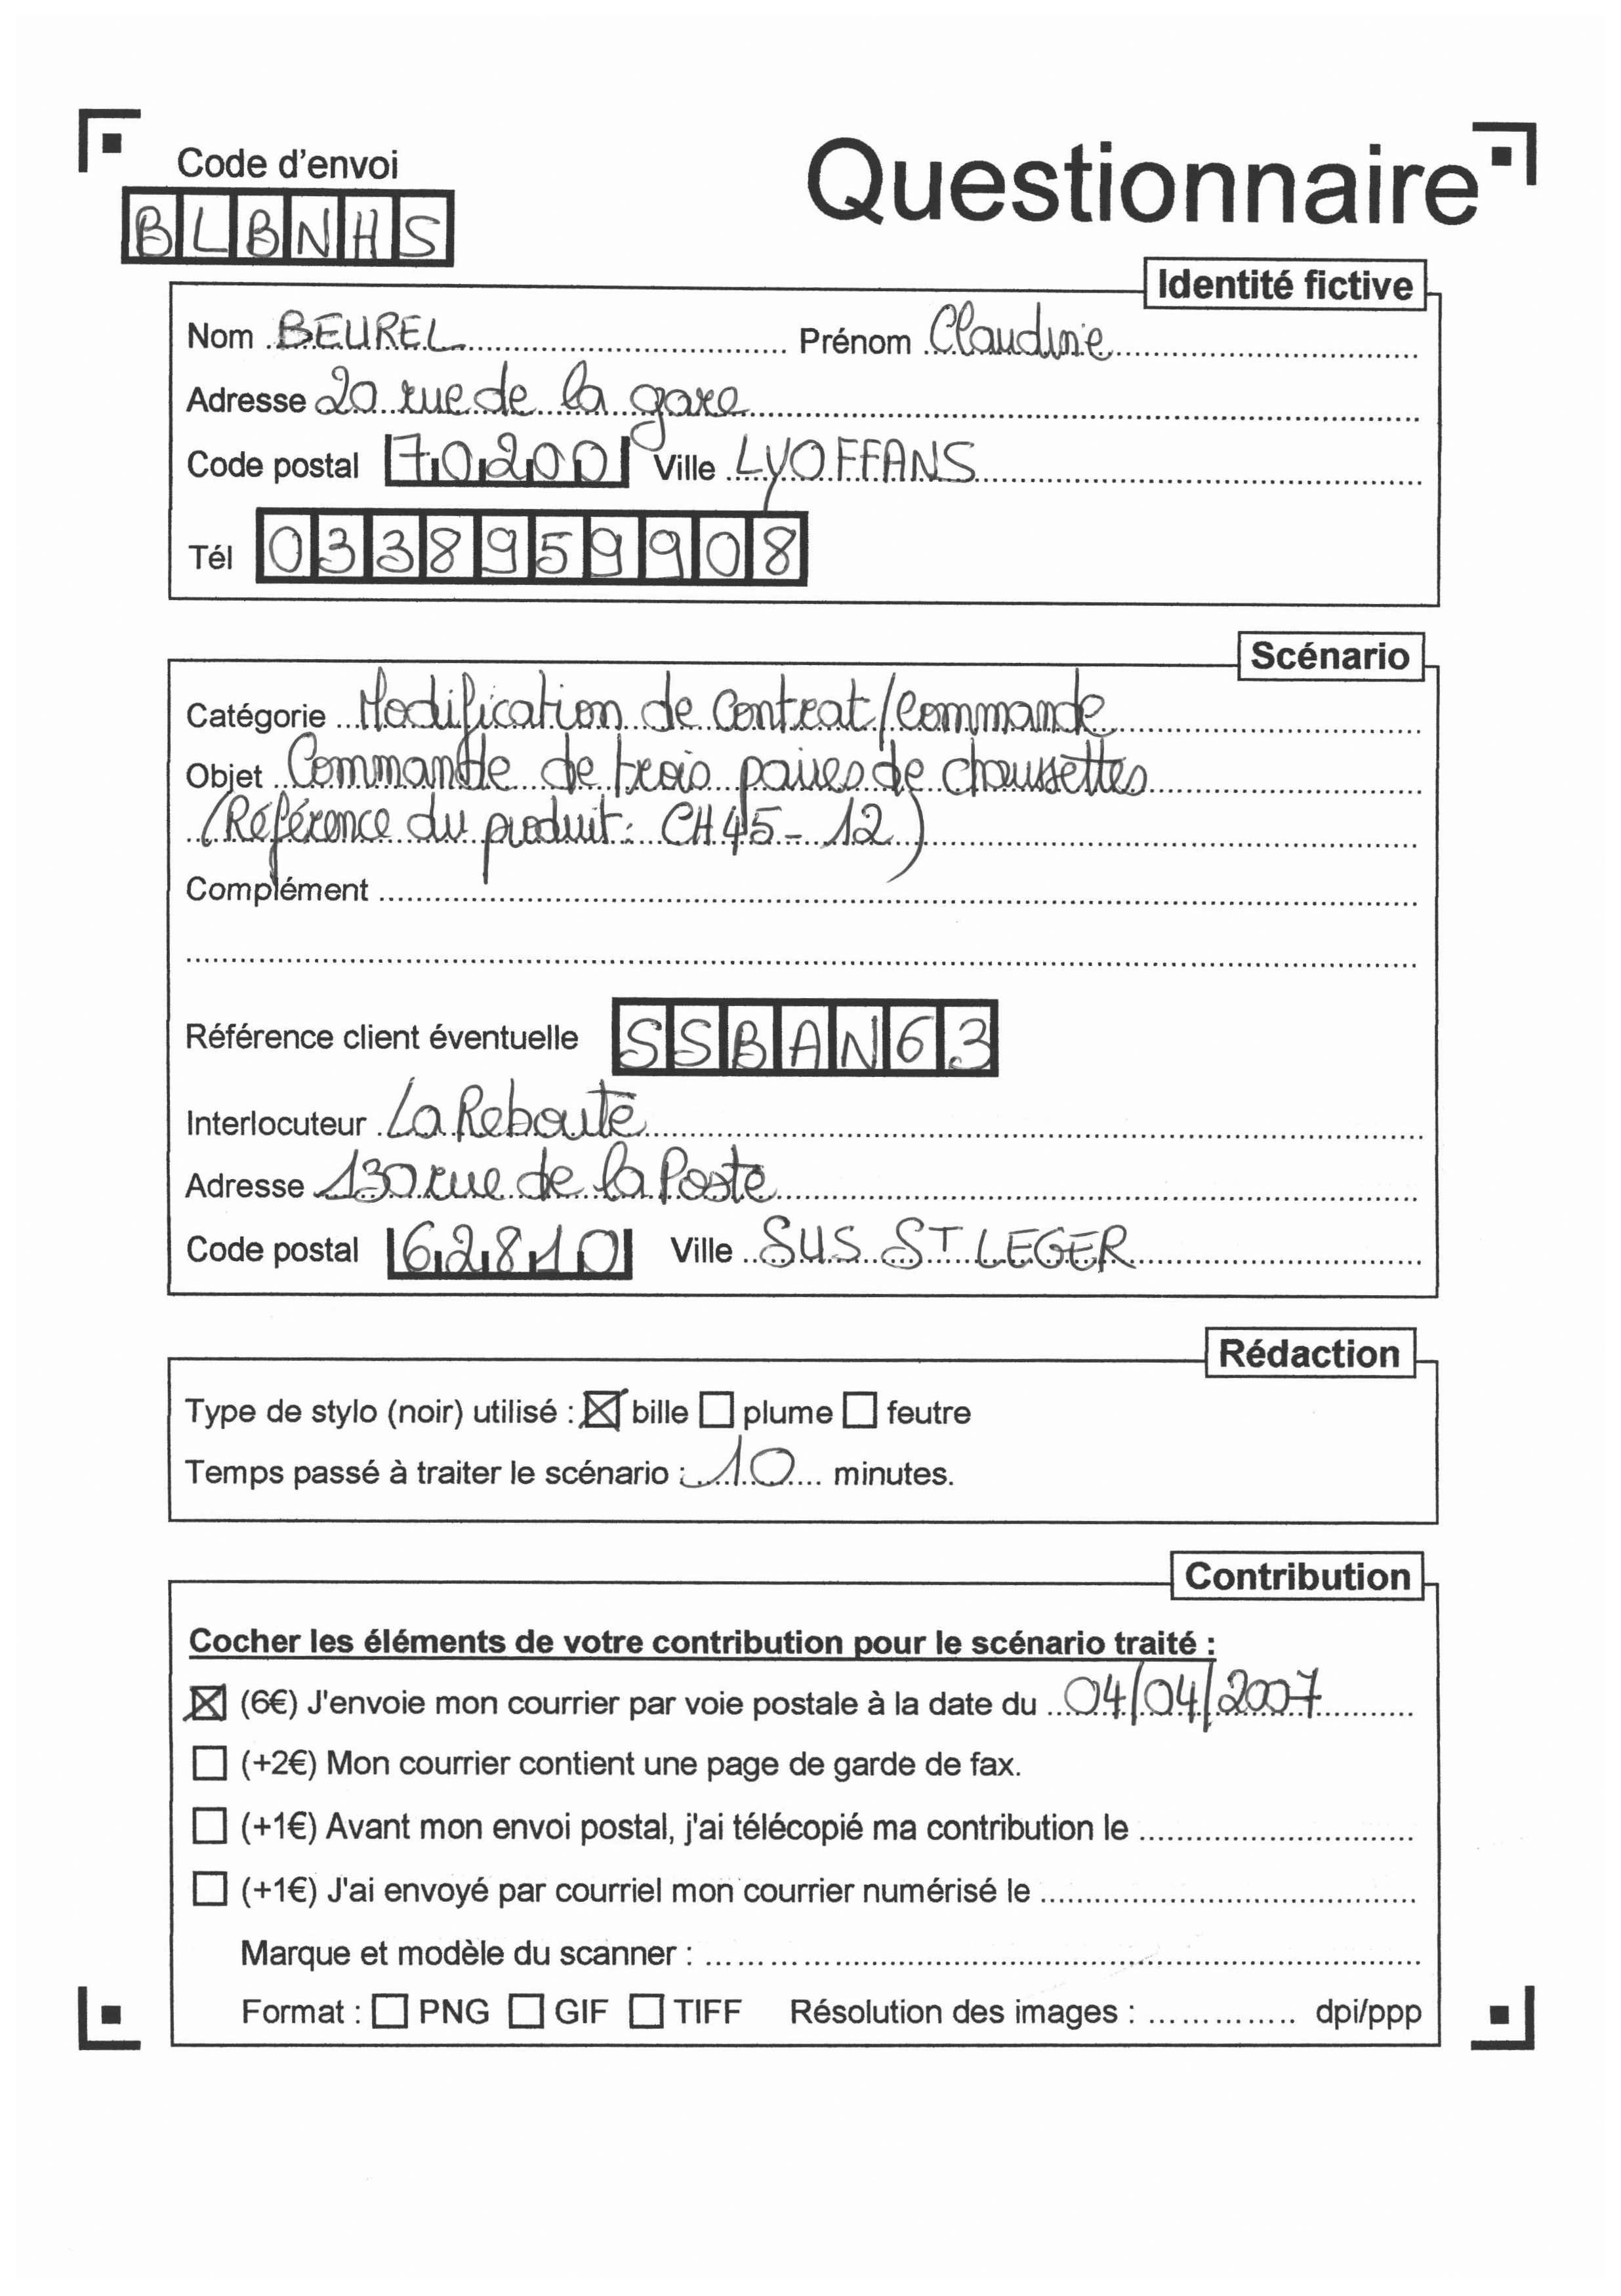 Code d'envoi
Questionnaire
BLBNHS
Identité fictive
Nom BEUREL Prénom Claudine
Adresse 20 rue de la gare
Code postal 70200 Ville LYOFFANS
Tél 0338959908
Scénario
Catégorie Modification de contrat/commande
Objet Commande de trois paires de chaussettes
(Référence du produit : CH45-12)
Complément
Référence client éventuelle SSBAN63
Interlocuteur La Reboute
Adresse 130 rue de la Poste
Code postal 62810 Ville SUS ST LEGER
Rédaction
Type de stylo (noir) utilisé : ☒ bille ☐ plume ☐ feutre
Temps passé à traiter le scénario : 10 minutes.
Contribution
Cocher les éléments de votre contribution pour le scénario traité :
☒ (6€) J'envoie mon courrier par voie postale à la date du 04/04/2007
☐ (+2€) Mon courrier contient une page de garde de fax.
☐ (+1€) Avant mon envoi postal, j'ai télécopié ma contribution le
☐ (+1€) J'ai envoyé par courriel mon courrier numérisé le
Marque et modèle du scanner :
Format : ☐ PNG ☐ GIF ☐ TIFF Résolution des images : dpi/ppp